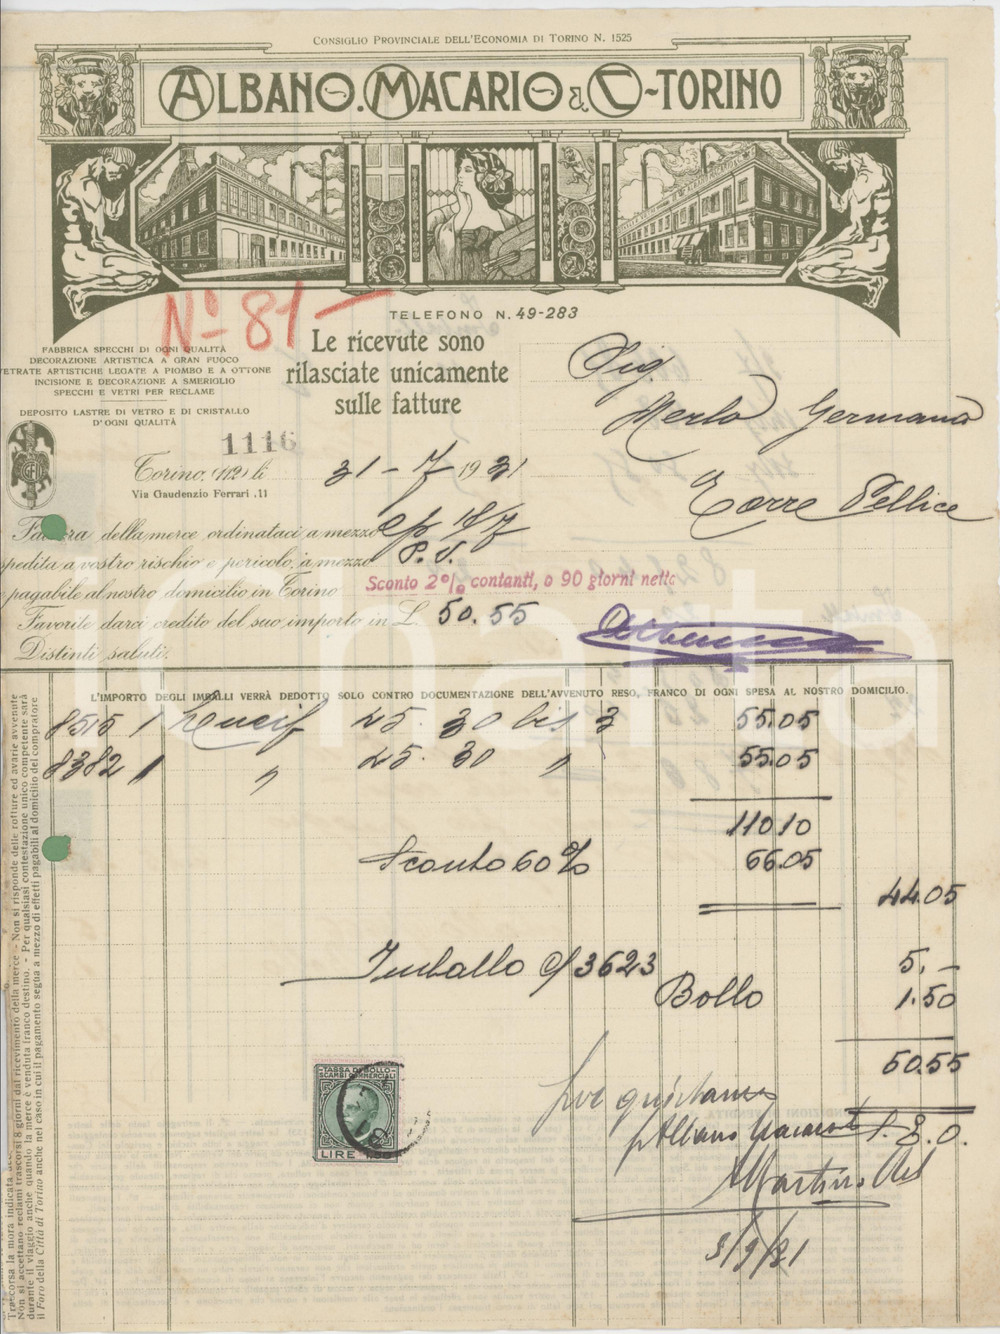 CONSIGLIO PROVINCIALE DELL'ECONOMIA DI TORINO N. 1525
ALBANO. MACARIO & C - TORINO
TELEFONO N. 49-283
No 81
FABBRICA SPECCHI DI OGNI QUALITÀ
DECORAZIONE ARTISTICA A GRAN FUOCO
VETRATE ARTISTICHE LEGATE A PIOMBO E A OTTONE
INCISIONE E DECORAZIONE A SMERIGLIO
SPECCHI E VETRI PER RECLAME
DEPOSITO LASTRE DI VETRO E DI CRISTALLO
D'OGNI QUALITÀ
Le ricevute sono
rilasciate unicamente
sulle fatture
Sig.
Merlo Germano
Torre Pellice
1116
Torino, (112) li 31 - 7 1931
Via Gaudenzio Ferrari, 11
Fattura della merce ordinataci a mezzo
spedita a vostro rischio e pericolo, a mezzo P.V.
pagabile al nostro domicilio in Torino Sconto 2% contanti, o 90 giorni netto
Favorite darci credito del suo importo in L. 50.55
Distinti saluti.
L'IMPORTO DEGLI IMBALLI VERRÀ DEDOTTO SOLO CONTRO DOCUMENTAZIONE DELL'AVVENUTO RESO, FRANCO DI OGNI SPESA AL NOSTRO DOMICILIO.
8515 1 Lucif 25. 30 bis 3 55.05
8382 1 " 25. 30 " 55.05
110 10
Sconto 60% 66.05
44.05
Imballo c/ 3623 5.-
Bollo 1.50
50.55
S. E. O.
TASSA DI BOLLO
SCAMBI COMMERCIALI
LIRE 1,50
per quietanza
p Albano Macario
Martino
3/9/31
Trascorsa la mora indicata
Non si accettano reclami trascorsi 8 giorni dal ricevimento della merce - Non si risponde delle rotture ed avarie avvenute
durante il viaggio anche quando la merce è venduta franco destino. - Per qualsiasi contestazione unico competente sarà
il Foro della Città di Torino anche nel caso in cui il pagamento segua a mezzo di effetti pagabili al domicilio del compratore